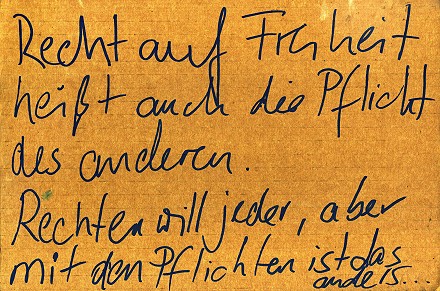 Recht auf Freiheit
heißt auch die Pflicht
des anderen.
Rechten will jeder, aber
mit den Pflichten ist das
anders...